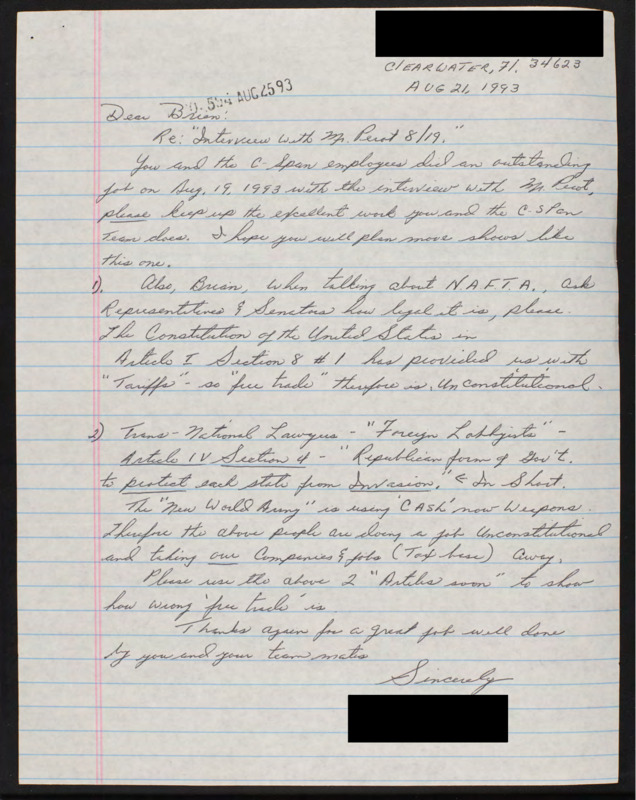 Clearwater, Fl. 34623
Aug 21, 1993
594 AUG2593
Dear Brian:
Re: "Interview with Mr. Perot 8/19."
You and the C-Span employees did an outstanding
job on Aug. 19, 1993 with the interview with Mr. Perot,
please keep up the excellent work you and the C-SPan
Team does. I hope you will plan more shows like
this one.
1). Also, Brian, when talking about N.A.F.T.A., ask
Representatives & Senators how legal it is, please.
The Constitution of the United States in
Article I Section 8 #1 has provided us with
"Tariffs" - so "free trade" therefore is Unconstitutional.
2) Trans-National Lawyers - "Foreign Lobbyists" -
Article IV Section 4 - "Republican form of Gov't.
to protect each state from Invasion," & In Short.
The "New World Army" is using 'CASH' now Weapons.
Therefore the above people are doing a job Unconstitutional
and taking our Companies & jobs (Tax base) away.
Please use the above 2 "Articles soon" to show
how wrong 'free trade' is
Thanks again for a great job well done
by you and your team mates
Sincerely